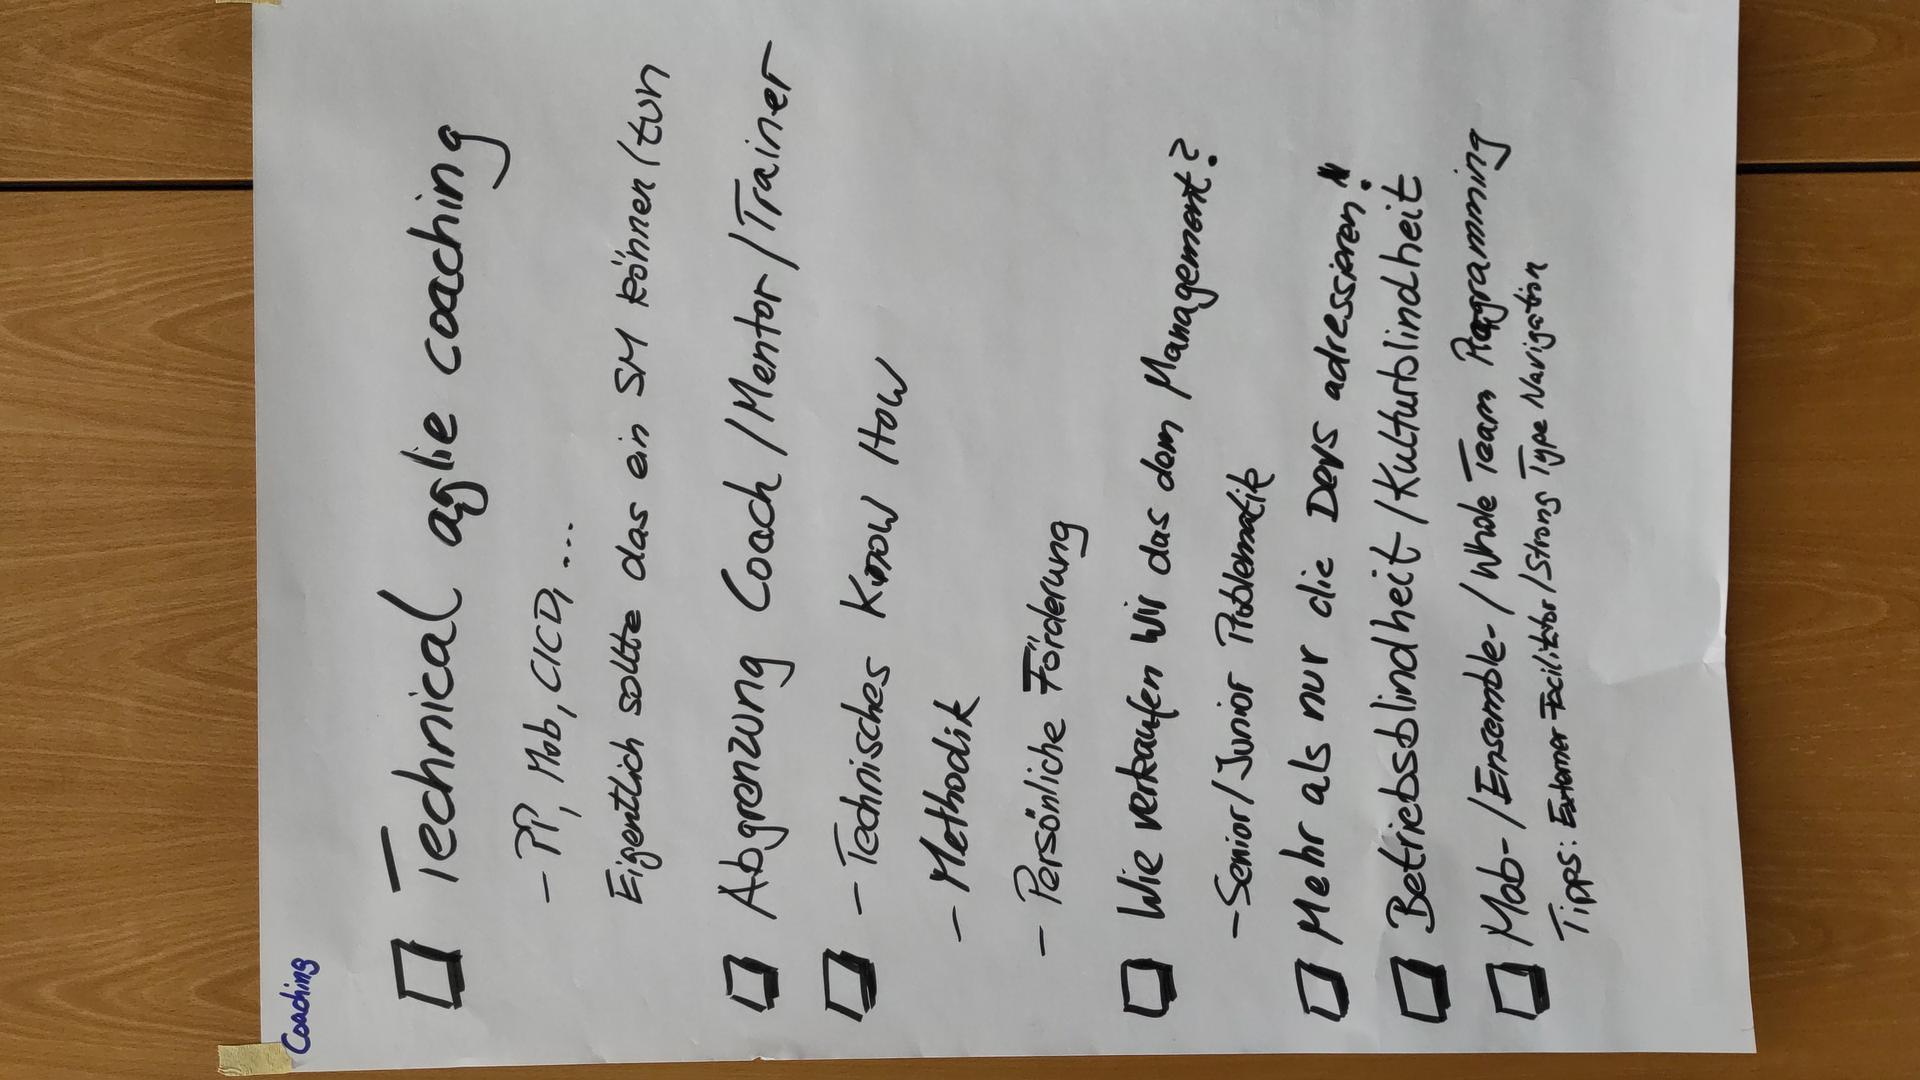 Coaching
Technical aglie coaching
- PP, Mob, CICD, ...
Eigentlich sollte das ein SM können/tun
Abgrenzung Coach/Mentor/Trainer
- Technisches Know How
- Methodik
- Persönliche Förderung
Wie verkaufen wir das dem Management?
- Senior/Junior Problematik
Mehr als nur die Devs adressieren!"
Betriebsblindheit/Kulturblindheit
Mob-/Ensemble-/Whole Team Programming
Tipps: Externer Facilitator/Strong Type Navigation